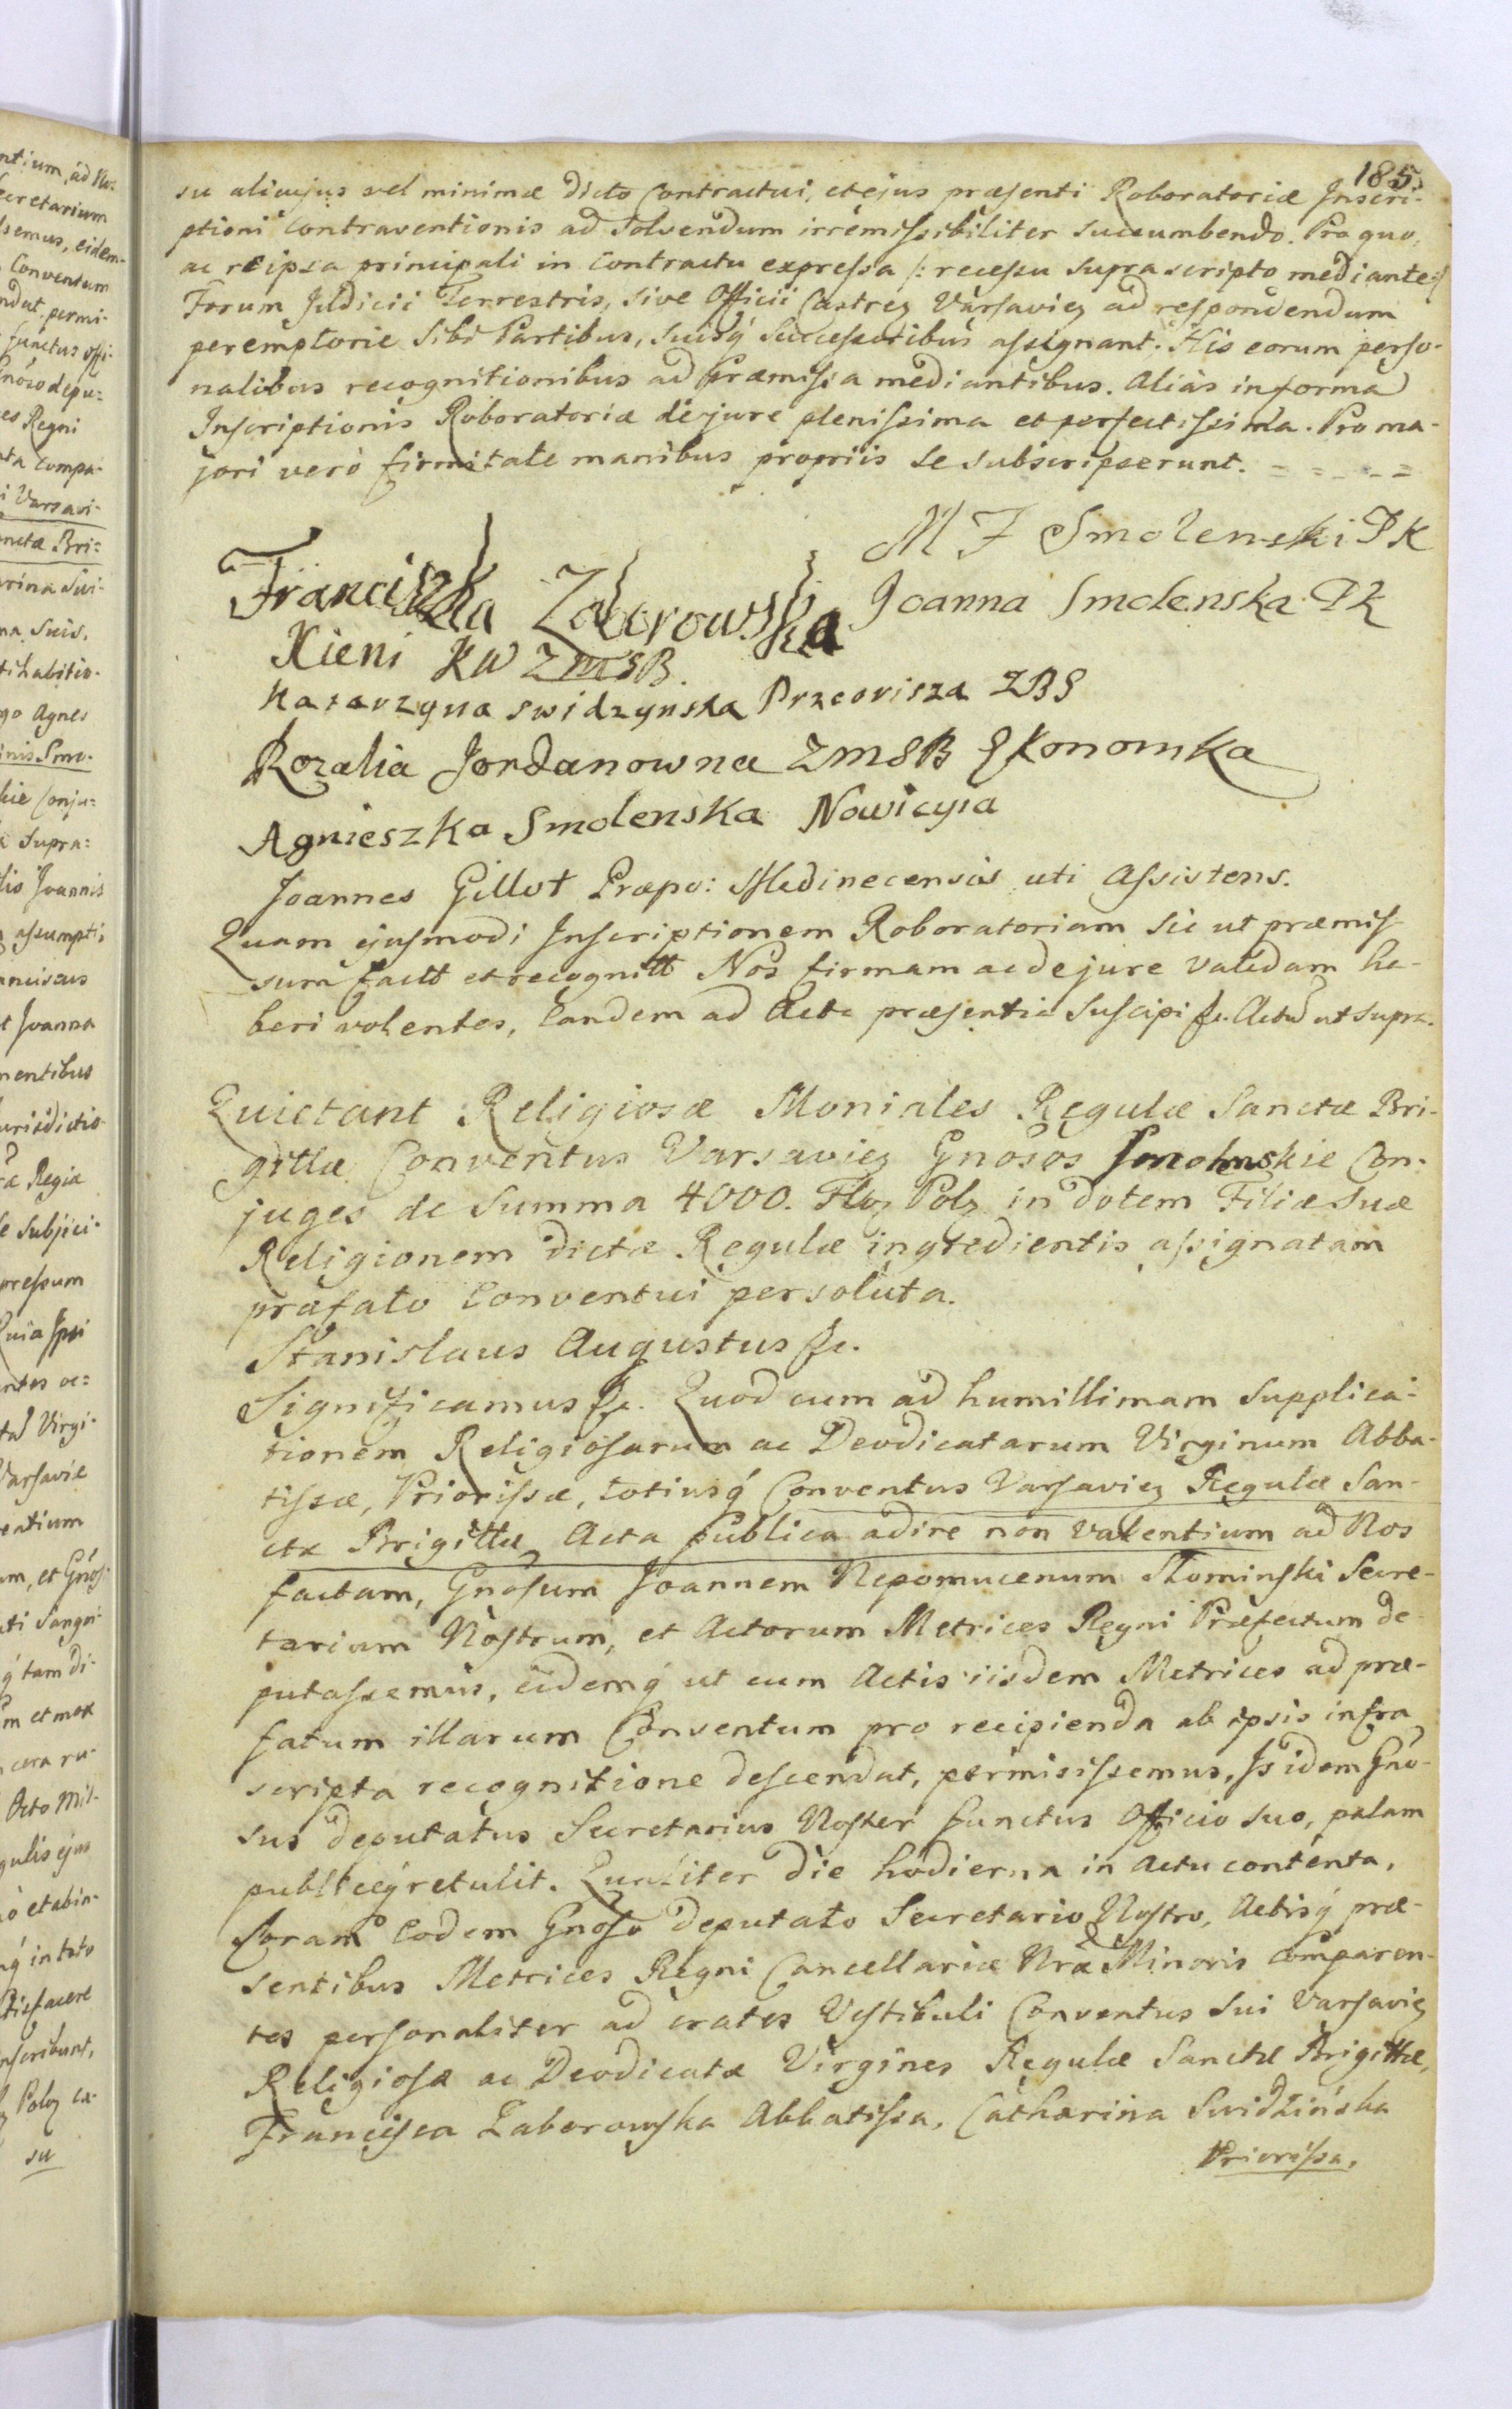 185.
su alicujus vel minimæ dicto Contractui, et ejus præsenti Roboratoriæ Inscri-
ptioni Contraventionis ad Solvendum irremissibiliter succumbendo. Pro quo,
ac re ipsa principali in Contractu expressa /: recessu supra scripto mediante :/
Forum Judicii Terrestris, sive Officii Castren Varsavien ad respondendum
peremptorie Sibi Partibus, suisq́ Successoribus assignant. His eorum perso-
nalibus recognitionibus ad Præmissa mediantibus. Alias in forma
Inscriptionis Roboratoriæ de jure plenissima et perfectissima. Pro ma-
jori vero firmitate manibus propriis se subscripserunt. = = = - =
M J Smolenski PK
Franciszka Zaborowska
Joanna Smolenska PK
Xieni KW ZMSB.
Katarzyna Swidzynska Przeorisza ZBS
Rozalia Jordanowna ZMSB Ekonomka
Agnieszka Smolenska Nowicya
Joannes Gillot Præpo: Medinecensis uti Assistens.
Quam ejusmodi Inscriptionem Roboratoriam sic ut præmis-
sum factt et recognitt Nos firmam ac de jure validam ha-
beri volentes, Eandem ad Acta præsentia Suscipi &c. Actũ ut supra.
Quietant Religiosæ Moniales Regulæ Sanctæ Bri-
gittæ Conventus Varsavien Gnosos Smolenskie Con-
juges de Summa 4000. Flor Pol in dotem Filiæ Suæ
Religionem dictæ Regulæ ingredientis assignatam
præfato Conventui persoluta.
Stanislaus Augustus &c.
Significamus &c. Quod cum ad humillimam supplica-
tionem Religiosarum ac Deodicatarum Virginum Abba-
tissæ, Priorissæ, totiusq́ Conventus Varsavien Regulæ San-
ctæ Brigittæ Acta publica adire non valentium ad Nos
factam, Gnosum Joannem Nepomucenum Słominski Secre-
tarium Nostrum, et Actorum Metrices Regni Præfectum de-
putassemus, eidemq́ ut cum Actis iisdem Metrices ad præ-
fatum illarum Conventum pro recipienda ab ipsis infra
scripta recognitione descendat, permisissemus, Is idem Gno-
sus deputatus Secretarius Noster functus Officio suo, palam
publiceq́ retulit. Qualiter die hodierna in Actu contenta,
Coram eodem Gnoso deputato Secretario Nostro, Actisq́ præ-
sentibus Metrices Regni Cancellariæ Nræ Minoris comparen-
tes personaliter ad crates Vestibuli Conventus sui Varsavien
Religiosæ ac Deodicatæ Virgines Regulæ Sanctæ Brigittæ,
Francisca Zaborowska Abbatissa, Catharina Swidzińska
Priorissa,